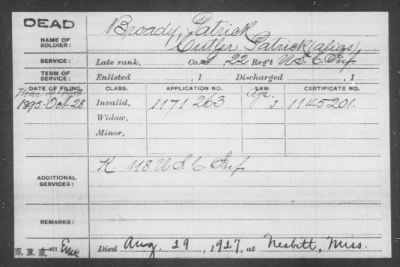 DEAD
NAME OF SOLDIER:
Broady, Patrick
Cutler Patrick (alias)
SERVICE:
Late rank, Co. G 22 Reg't U.S.C. Inf
TERM OF SERVICE:
Enlisted , 1 Discharged , 1
DATE OF FILING. CLASS. APPLICATION NO. LAW. CERTIFICATE NO.
1893-Oct-28 Invalid, 1171263 Age 1145201.
Widow,
Minor,
ADDITIONAL SERVICES:
K 118 U.S.C Inf
REMARKS:
Died Aug. 29, 1927, at Nesbitt, Miss.